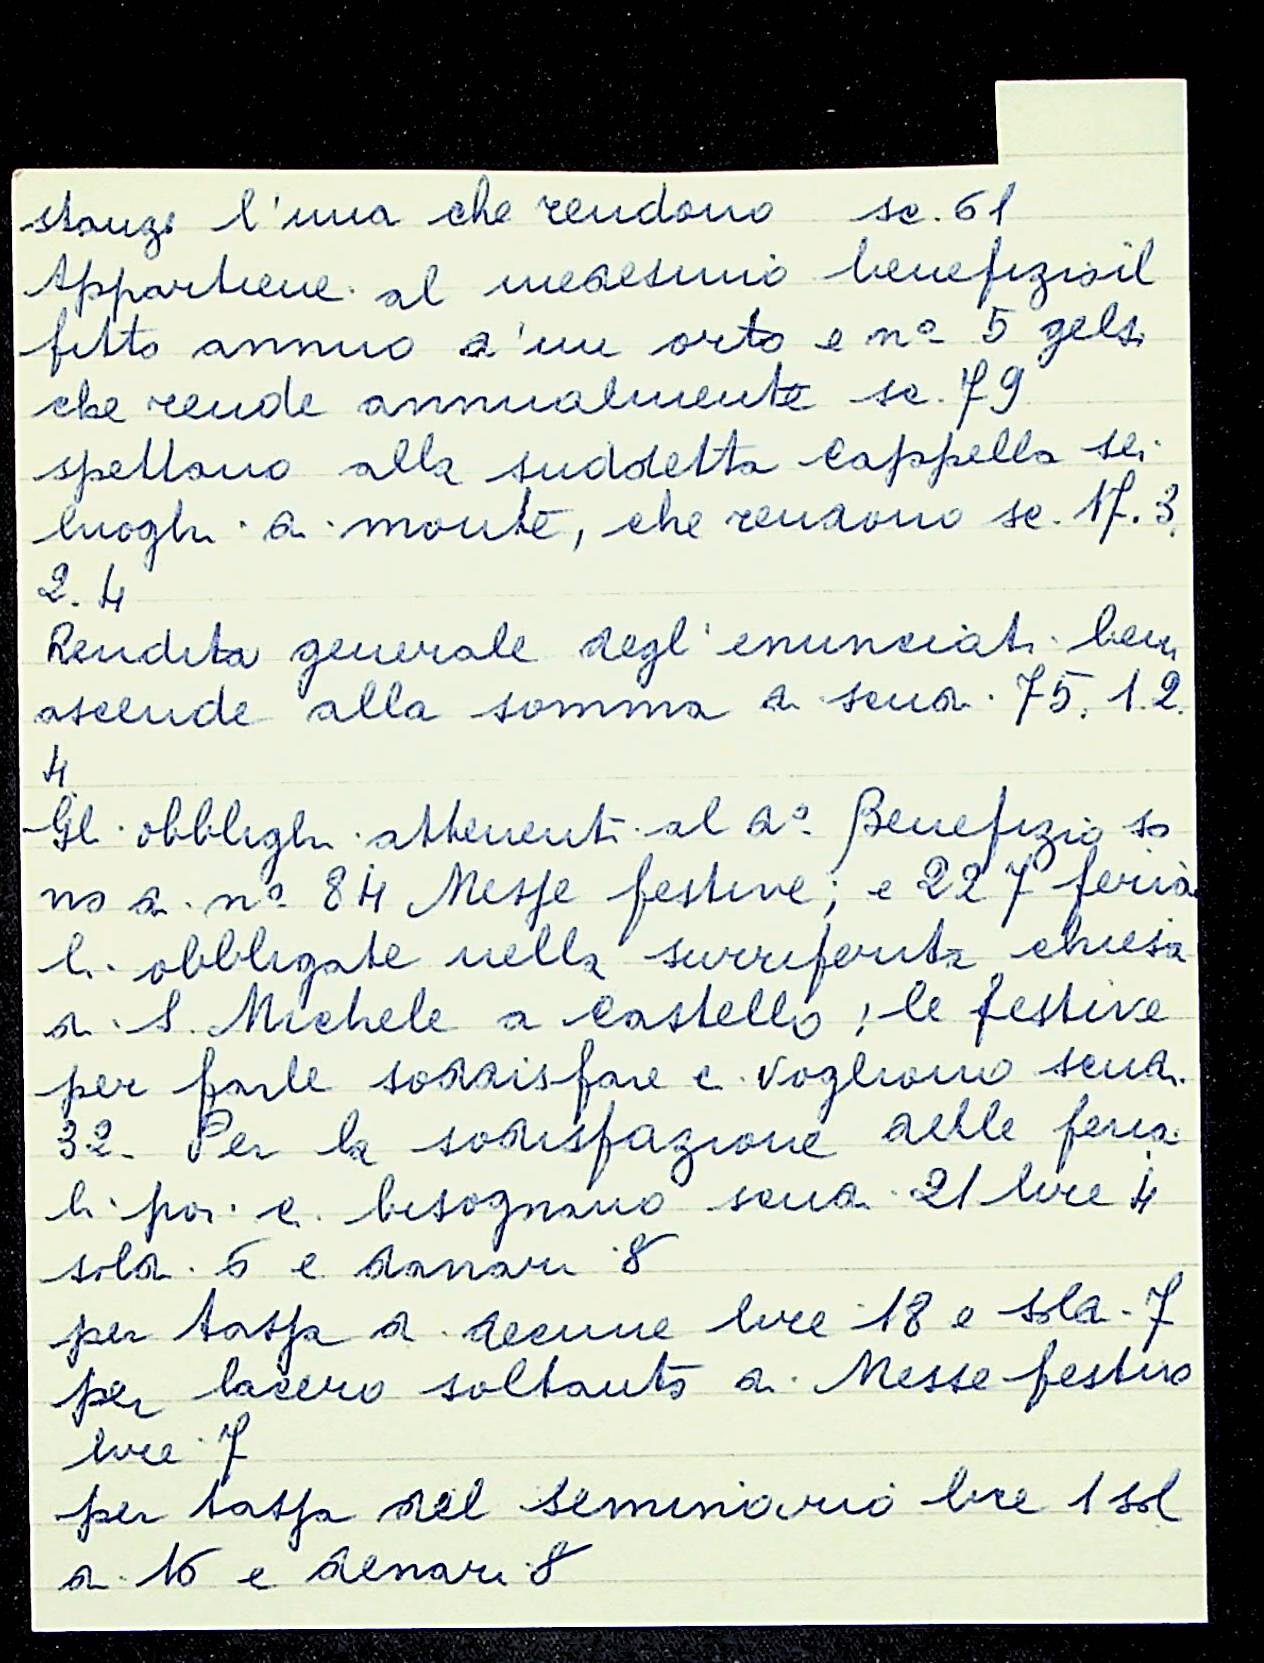 stanze l'una che rendono sc. 61
Appartiene al medesimo benefizio il
fitto annuo d'un orto e n° 5 gelsi
che rende annualmente sc. 79
spettano alla suddetta Cappella sei
luoghi di monte, che rendono sc. 17. 3.
2. 4
Rendita generale degl'enunciati beni
ascende alla somma di scudi 75. 1. 2.
4
Gli obblighi attenenti al d° Benefizio so
no di n° 84 Messe festive; e 227 feria
li obbligate nella surriferita chiesa
di S. Michele a Castello; le festive
per farle soddisfare ci vogliono scudi
32. Per la sodisfazione delle feria
li poi ci bisognano scudi 21 lire 4
soldi 6 e danari 8
per tassa di decime lire 18 e soldi 7
per lacero soltanto di Messe festive
lire 7
per tassa del seminario lire 1 sol
di 16 e denari 8